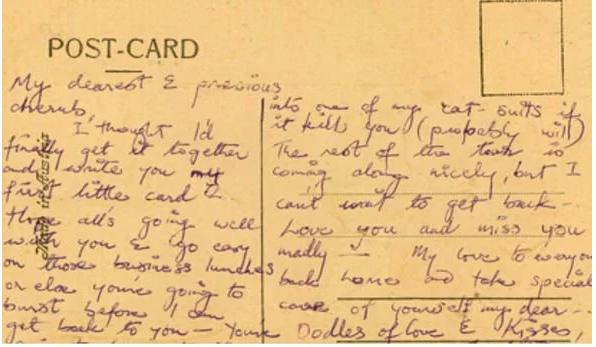 POST-CARD
My dearest & precious
cherub,
I thought I'd
finally get it together
and write you my
first little card &
Hope all's going well
with you & go easy
on those business lunches
or else you're going to
burst before I can
get back to you — You're
Made in Austria
into one of my cat-suits if
it kill you (probably will)
The rest of the tour is
coming along nicely, but I
can't wait to get back —
Love you and miss you
madly — My love to everyone
back home and take special
care of yourself my dear —
Oodles of love & Kisses,